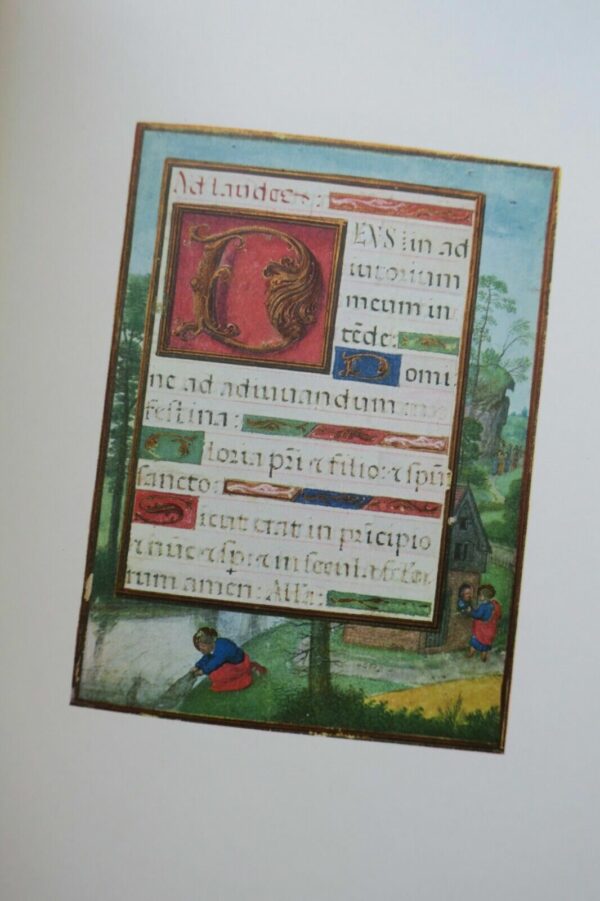 Ad laudes:
DEVS in ad
iutorium
meum in
tēde:
Domi
ne ad adiuuandum me
festina:
Gloria pr̄i & filio: & spūi
sancto:
Sicut erat in prīcipio
& nūc & sp̄: & in secula seculo
rum amen: Alla: